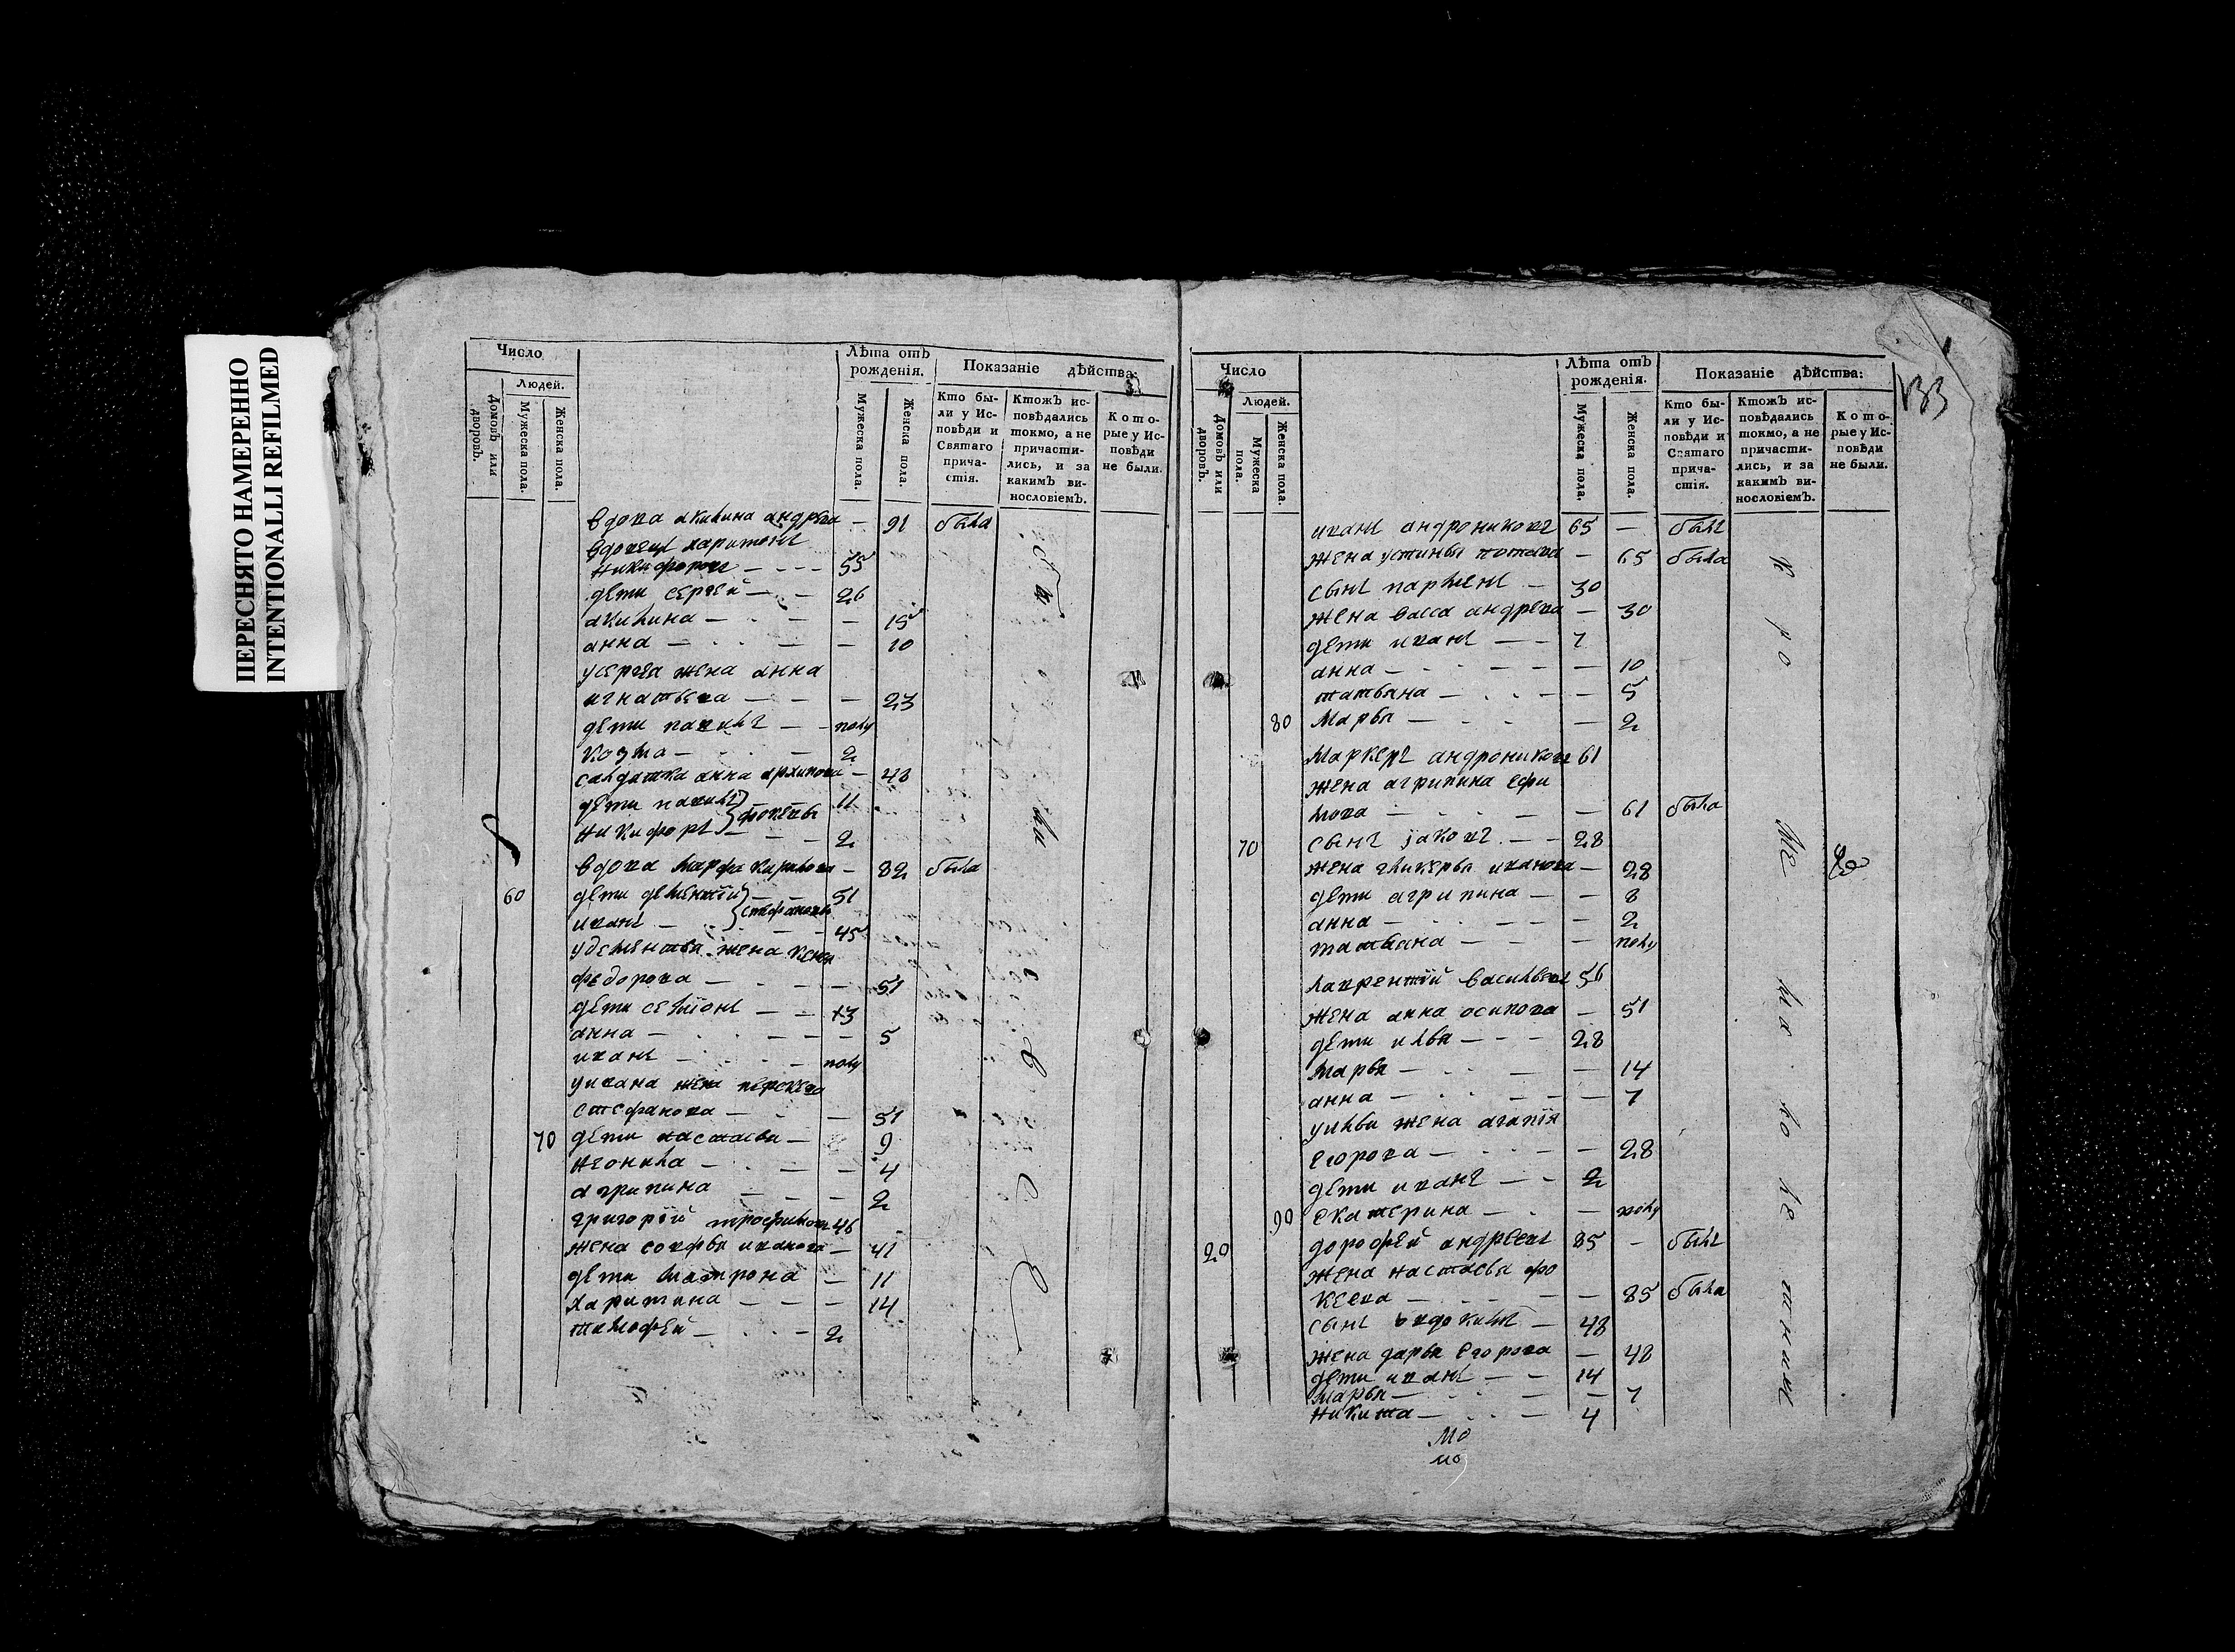 ПЕРЕСНЯТО НАМЕРЕННО
INTENTIONALLI REFILMED
Число
Людей.
Домовъ или дворовъ.
Мужеска пола.
Женска пола.
Лѣта отъ рожденія.
Мужеска пола.
Женска пола.
Показаніе дѣйства:
Кто были у Исповѣди и Святаго причастія.
Ктожъ исповѣдались токмо, а не причастились, и за какимъ винословіемъ.
Которые у Исповѣди не были.
вдова акилина андрѣева — 91 была
вдовецъ харитонъ
никифоровъ — — — 55
дѣти сергѣй — — 26
акилина — — — 15
анна — — — 10
усергѣя жена анна
игнатьева — — — 23
дѣти павилъ — — полу
козма — — 2
салдатка анна архипова — 48
дѣти павилъ } фокевы 11
никифоръ — — 2
вдова марфа карпова — 82 была
60 дѣти дементій } стефановы 51
иванъ — — 45
удементья жена ксенья
федорова — — — 51
дѣти семіонъ — — 13
анна — — — 5
иванъ — — полу
уивана жена
стефанова — — 51
70 дѣти настасья — 9
— — 4
агрипина — — — 2
григорій трофимовъ 46
жена софья иванова — 41
дѣти матрона — 11
харитина — — — 14
тимофѣй — — 2
Число
Людей.
Домовъ или дворовъ.
Мужеска пола.
Женска пола.
Лѣта отъ рожденія.
Мужеска пола.
Женска пола.
Показаніе дѣйства:
Кто были у Исповѣди и Святаго причастія.
Ктожъ исповѣдались токмо, а не причастились, и за какимъ винословіемъ.
Которые у Исповѣди не были.
133
иванъ андрониковъ 65 — былъ
жена устинья потапова — 65 была
сынъ парменъ — 30
жена васса андрѣева — 30
дѣти иванъ — — 7
анна — — — — 10
татьяна — — — 5
80 Марья — — — 2
Маркелъ андрониковъ 61
жена агрипина ефи
мова — — — 61 была
70 сынъ іаковъ — — 28
жена гликерья иванова — 28
дѣти агрипина — — 8
анна — — — 2
татьяна — — — полу
лаврентій васильевъ 56
жена анна осипова — 51
дѣти илья — — — 28
марья — — — 14
анна — — — 7
уильи жена агапія
егорова — — — 28
дѣти иванъ — — 2
90 екатерина — — полу
20 дорофѣй андрѣевъ 85 — былъ
жена настасья фо
кеева — — — 85 была
сынъ — 48
жена дарья егорова — 48
дѣти иванъ — — 14
марья — — — 7
никита — — 4